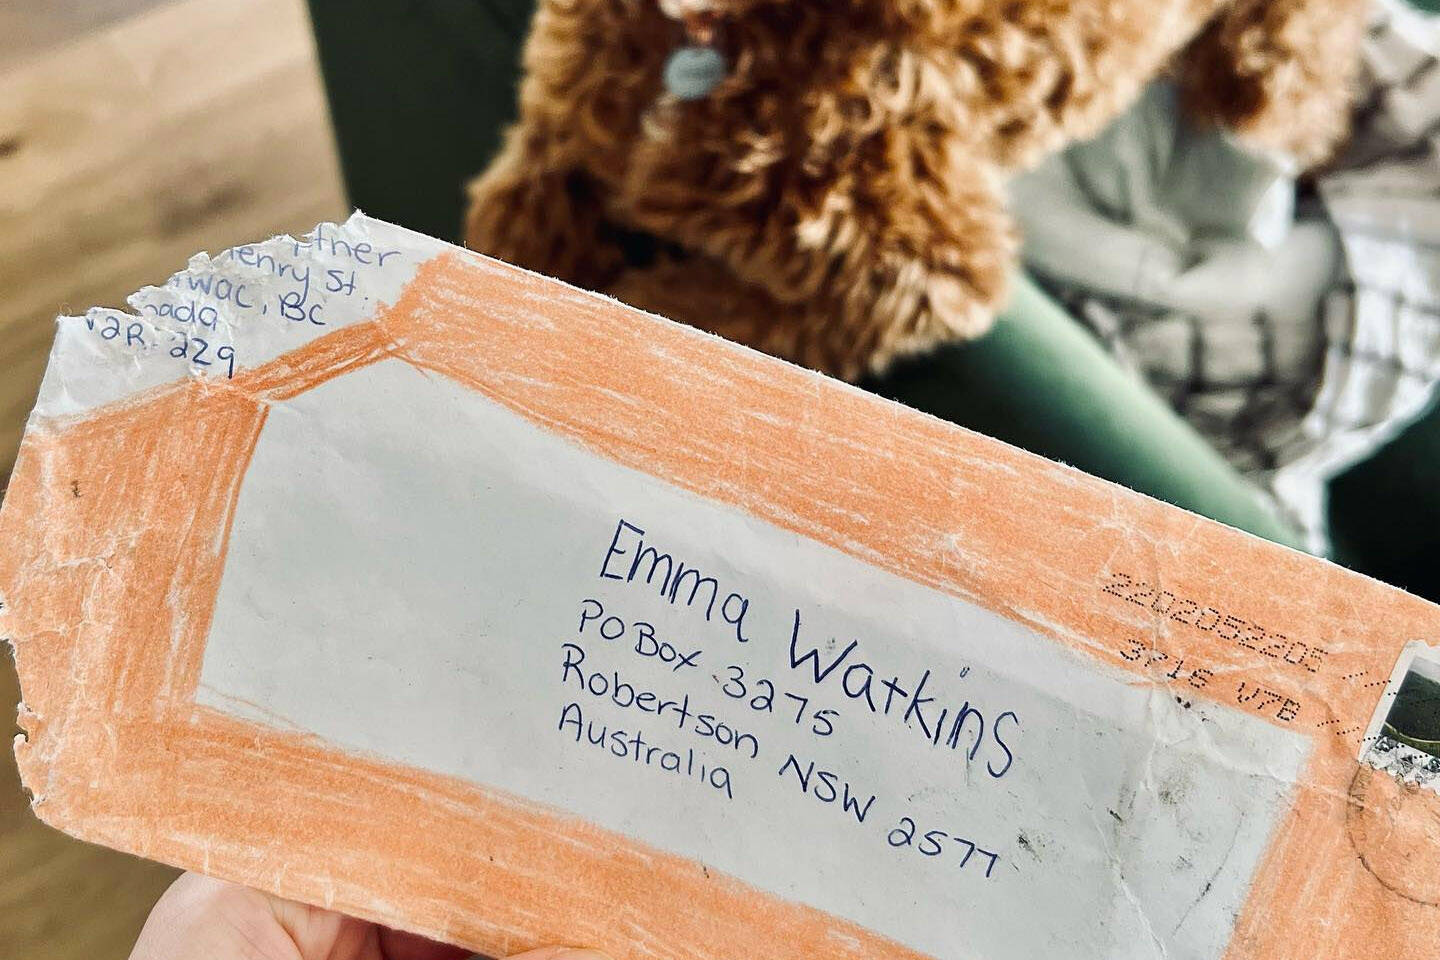 St.
BC
V2R 2Z9
Emma Watkins
PO Box 3275
Robertson NSW 2577
Australia
2202052205
3716 V7B